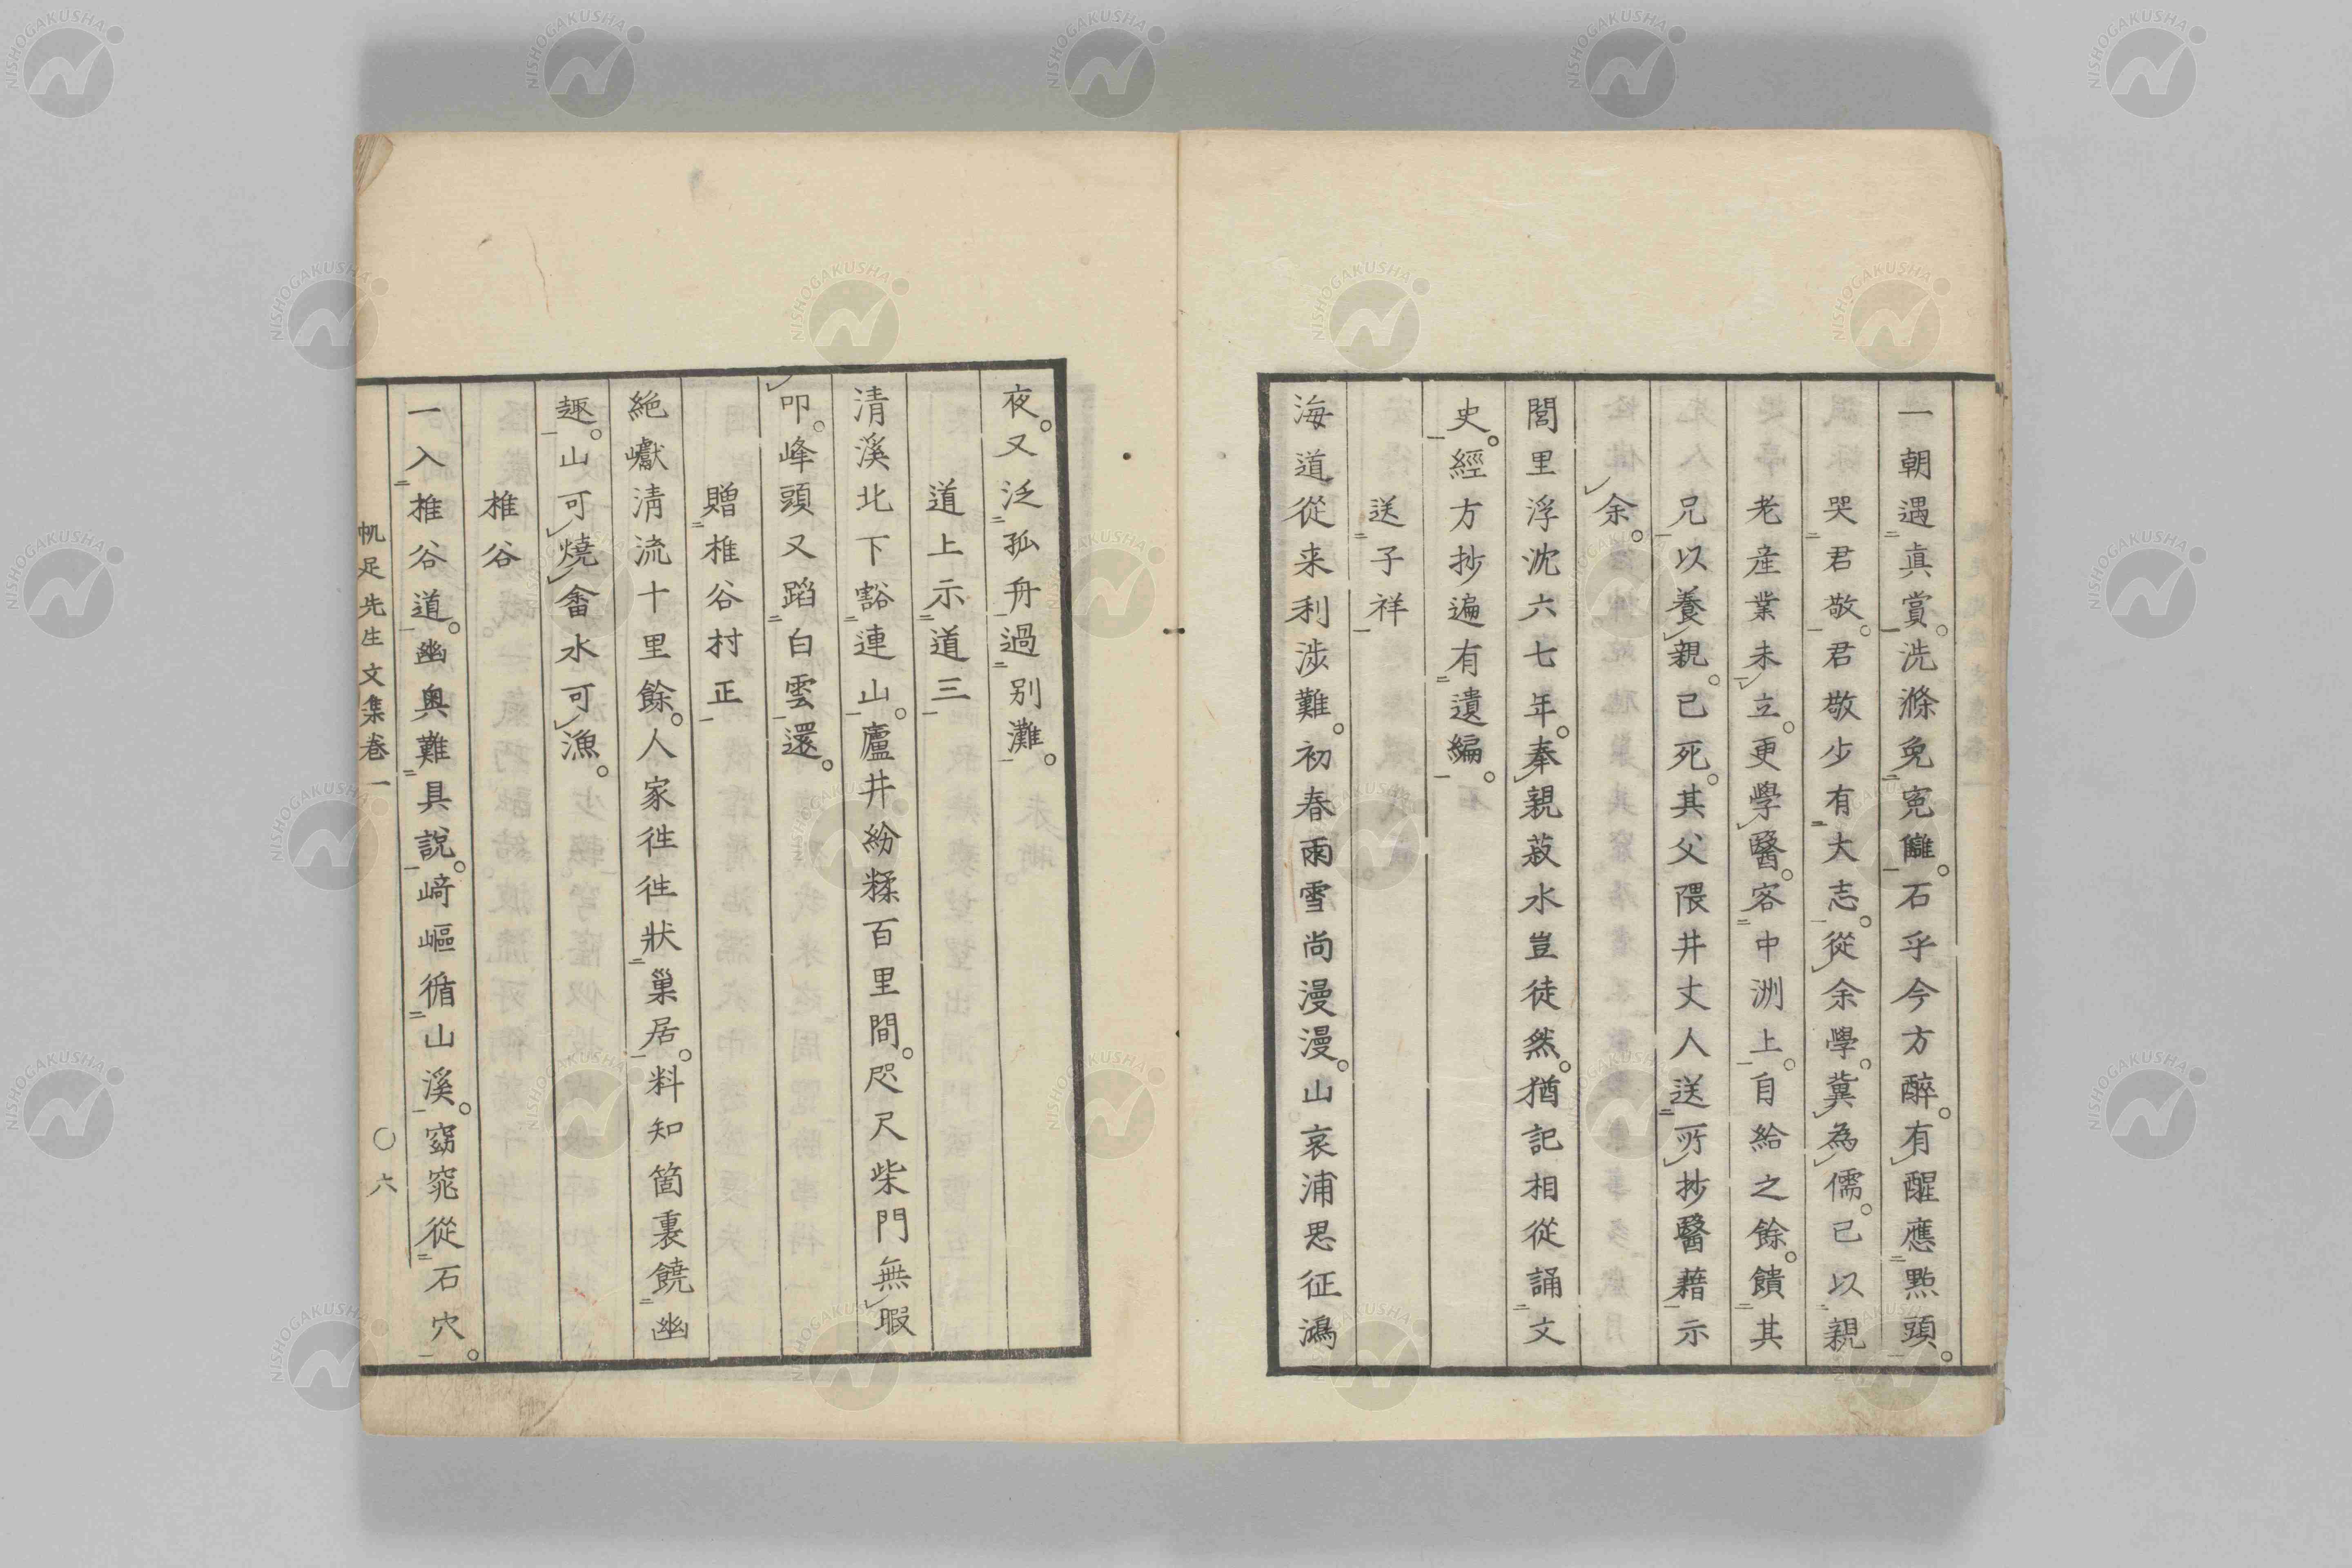 一朝遇真賞。洗滌免寃讎。石乎今方醉。有醒應點頭。
哭君敬。君敬少有大志。從余學。冀為儒。已以親
老産業未立。更學醫。客中洲上。自給之餘。饋其
兄以養親。已死。其父隈井丈人送所抄醫藉示
余。
閭里浮沈六七年。奉親菽水豈徒然。猶記相從誦文
史。經方抄遍有遺編。
送子祥
海道從来利涉難。初春雨雪尚漫漫。山哀浦思征鴻
夜。又泛孤舟過別灘。
道上示道三
清溪北下豁連山。廬井紛糅百里間。咫尺柴門無暇
叩。峰頭又蹈白雲還。
贈椎谷村正
絶巘清流十里餘。人家徃徃狀巢居。料知箇裏饒幽
趣。山可燒畬水可漁。
椎谷
一入椎谷道。幽奥難具說。﨑嶇循山溪。窈窕從石穴。
帆足先生文集卷一 〇六
NISHOGAKUSHA